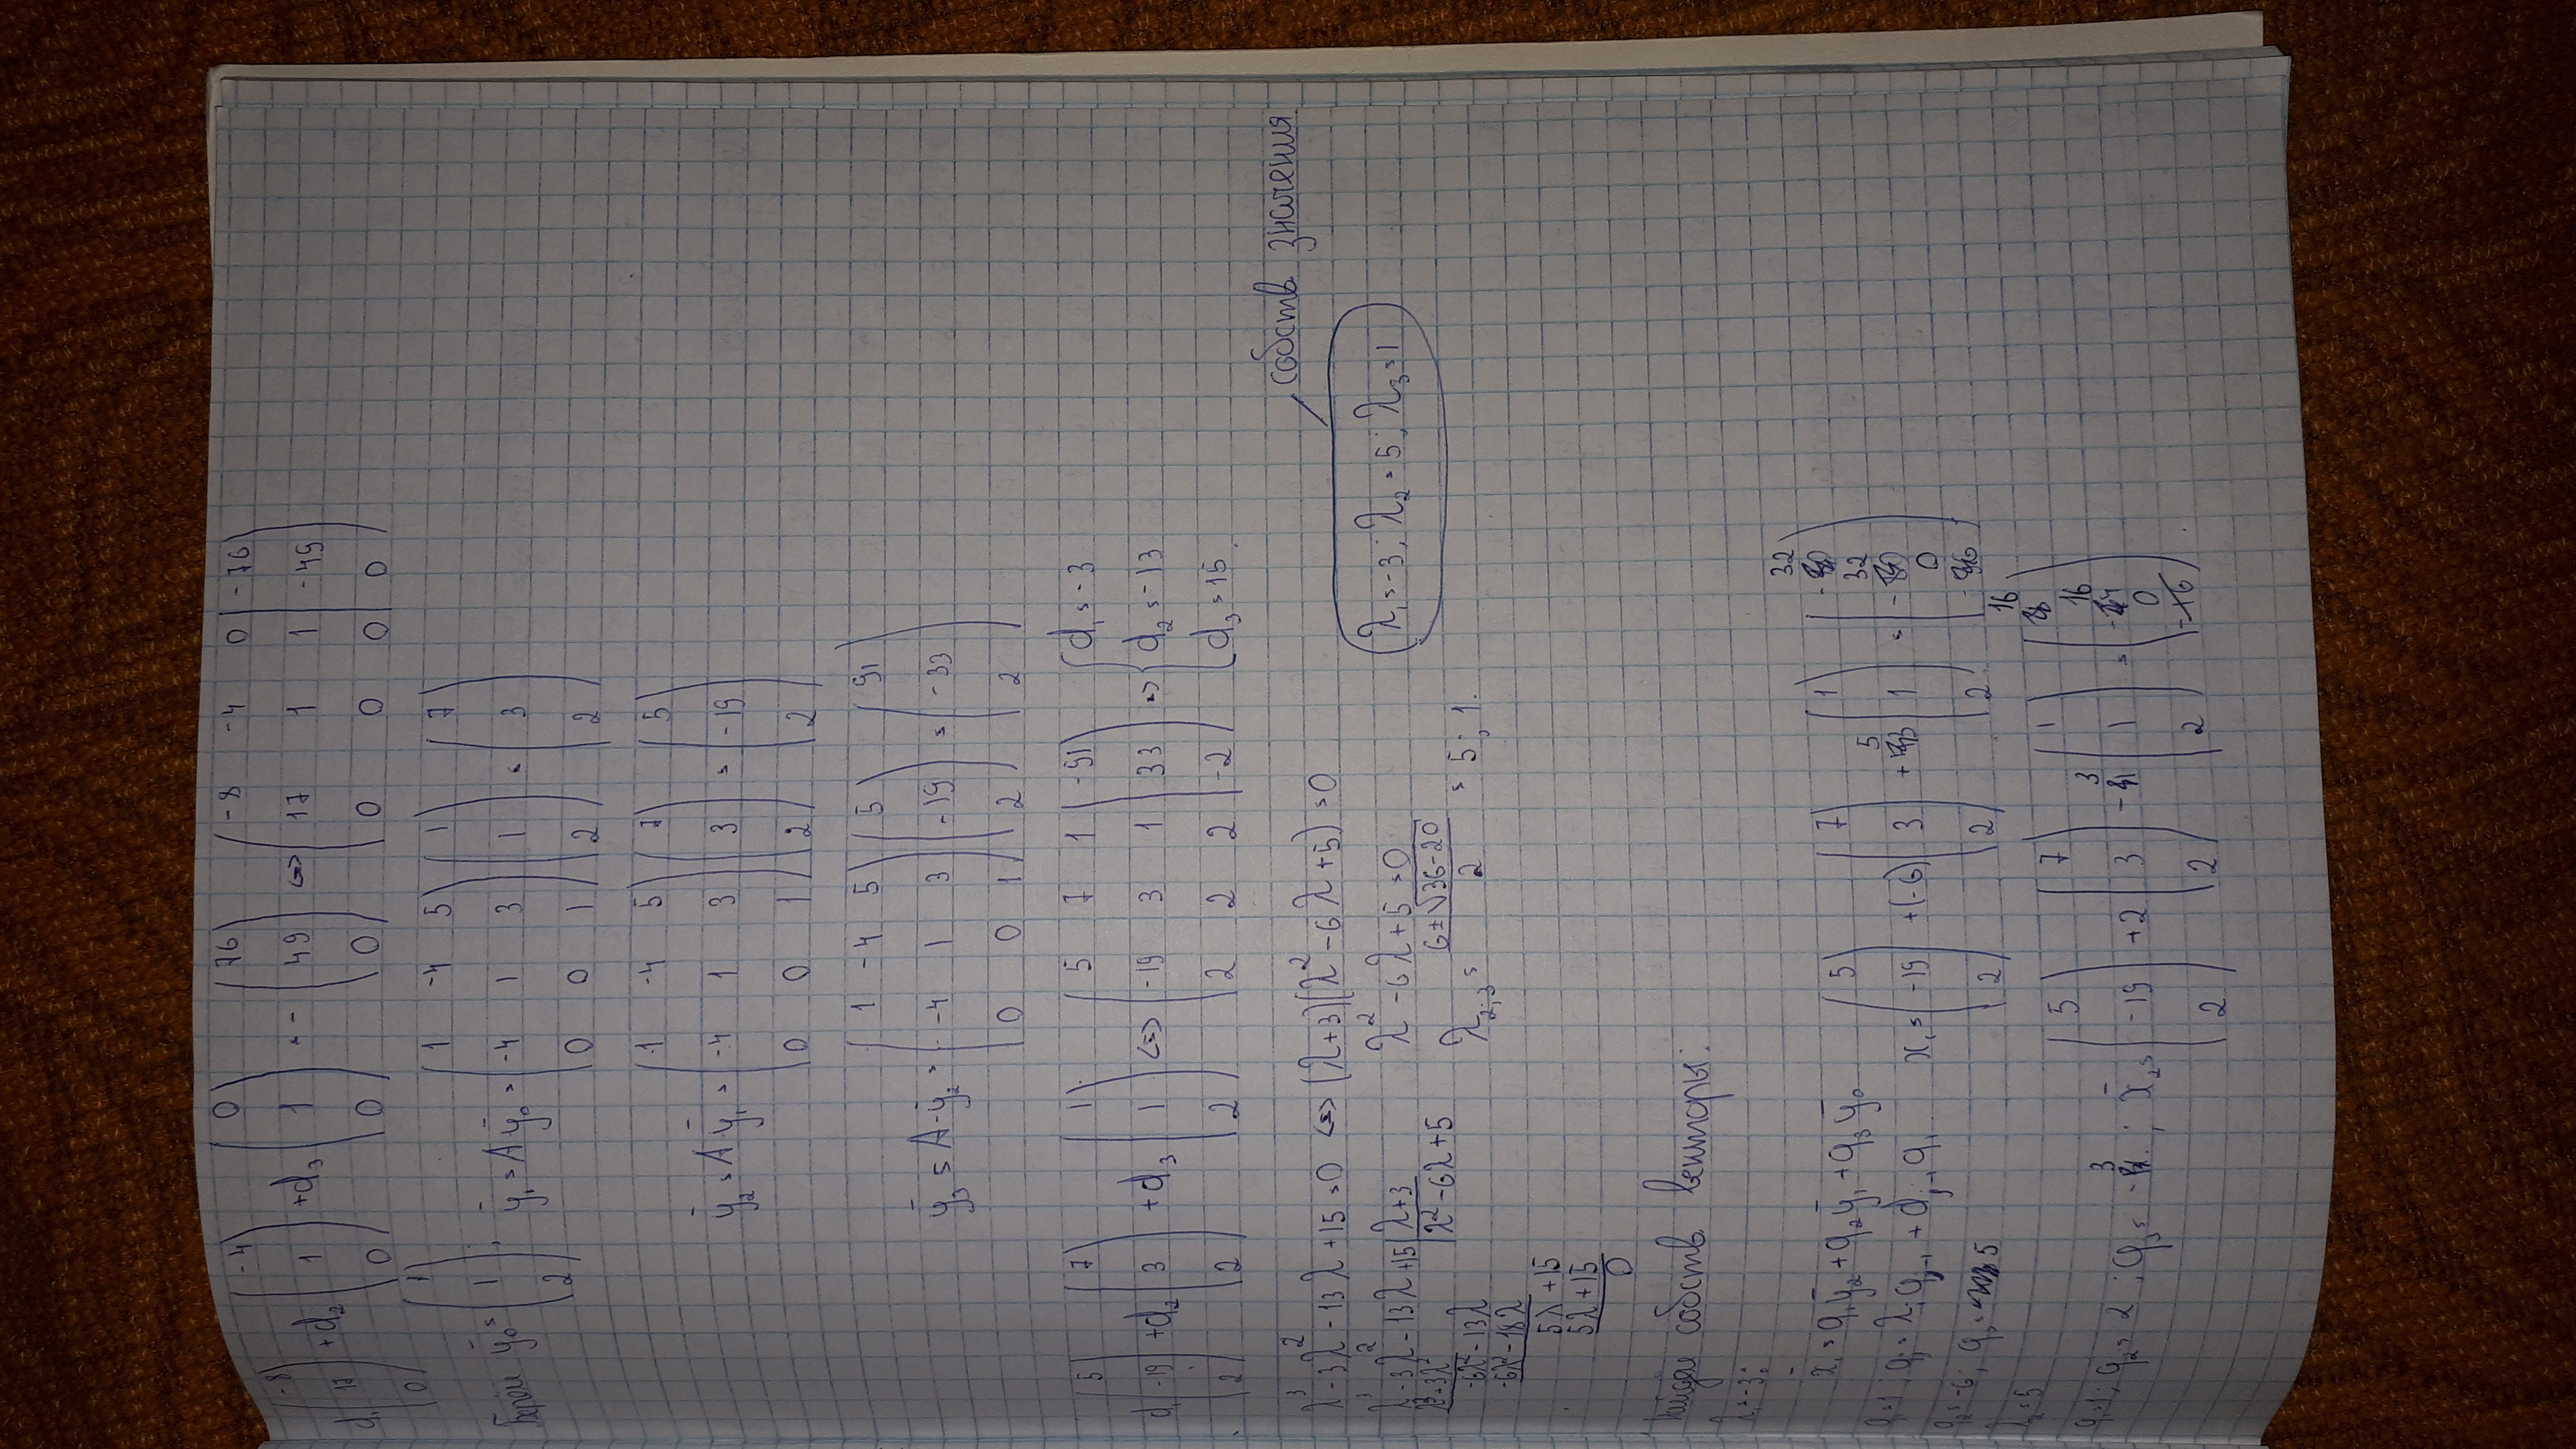 d₁(-8 17 0) + d₂(-4 1 0) + d₃(0 1 0) = -(76 49 0) <=> (-8 -4 0 | -76
17 1 1 | -49
0 0 0 | 0)
Берём y̅₀ = (1 1 2); y̅₁ = A y̅₀ = (1 -4 5
-4 1 3
0 0 1) (1 1 2) = (7 3 2)
y̅₂ = A y̅₁ = (1 -4 5
-4 1 3
0 0 1) (7 3 2) = (5 -19 2)
y̅₃ = A·y̅₂ = (1 -4 5
-4 1 3
0 0 1) (5 -19 2) = (91 -33 2)
d₁(5 -19 2) + d₂(7 3 2) + d₃(1 1 2) <=> (5 7 1 | -91
-19 3 1 | 33
2 2 2 | -2) => { d₁ = -3
d₂ = -13
d₃ = 15.
собств. значения
λ³ - 3λ² - 13λ + 15 = 0 <=> (λ+3)(λ² - 6λ + 5) = 0
λ₁ = -3; λ₂ = 5; λ₃ = 1
λ³ - 3λ² - 13λ + 15 | λ+3
λ³ + 3λ² | λ² - 6λ + 5
-6λ² - 13λ
-6λ² - 18λ
5λ + 15
5λ + 15
0
λ² - 6λ + 5 = 0
λ₂;₃ = (6 ± √36-20) / 2 = 5; 1.
Найдём собств. векторы:
λ₁ = -3:
x̅₁ = q₁y̅₂ + q₂y̅₁ + q₃y̅₀
q₁ = 1; qⱼ = λᵢqⱼ₋₁ + dⱼ₋₁q₁
q₂ = -6; q₃ = 5
x₁ = (5 -19 2) + (-6) (7 3 2) + 5 (1 1 2) = (-32 -32 0)
λ₂ = 5
q₁ = 1; q₂ = 2; q₃ = -3; x̅₂ = (5 -19 2) + 2 (7 3 2) - 3 (1 1 2) = (16 -16 0).